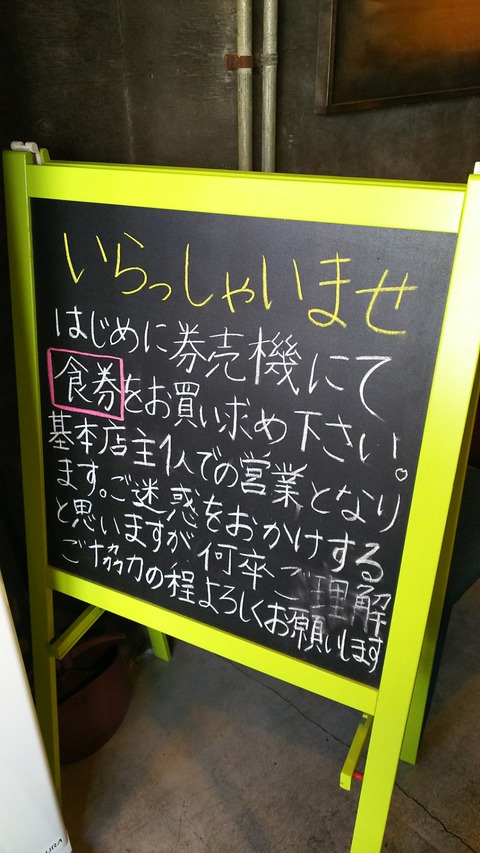 いらっしゃいませ
はじめに券売機にて
食券をお買い求め下さい。
基本店主1人での営業となり
ます。ご迷惑をおかけする
と思いますが何卒ご理解
ご協力の程よろしくお願いします